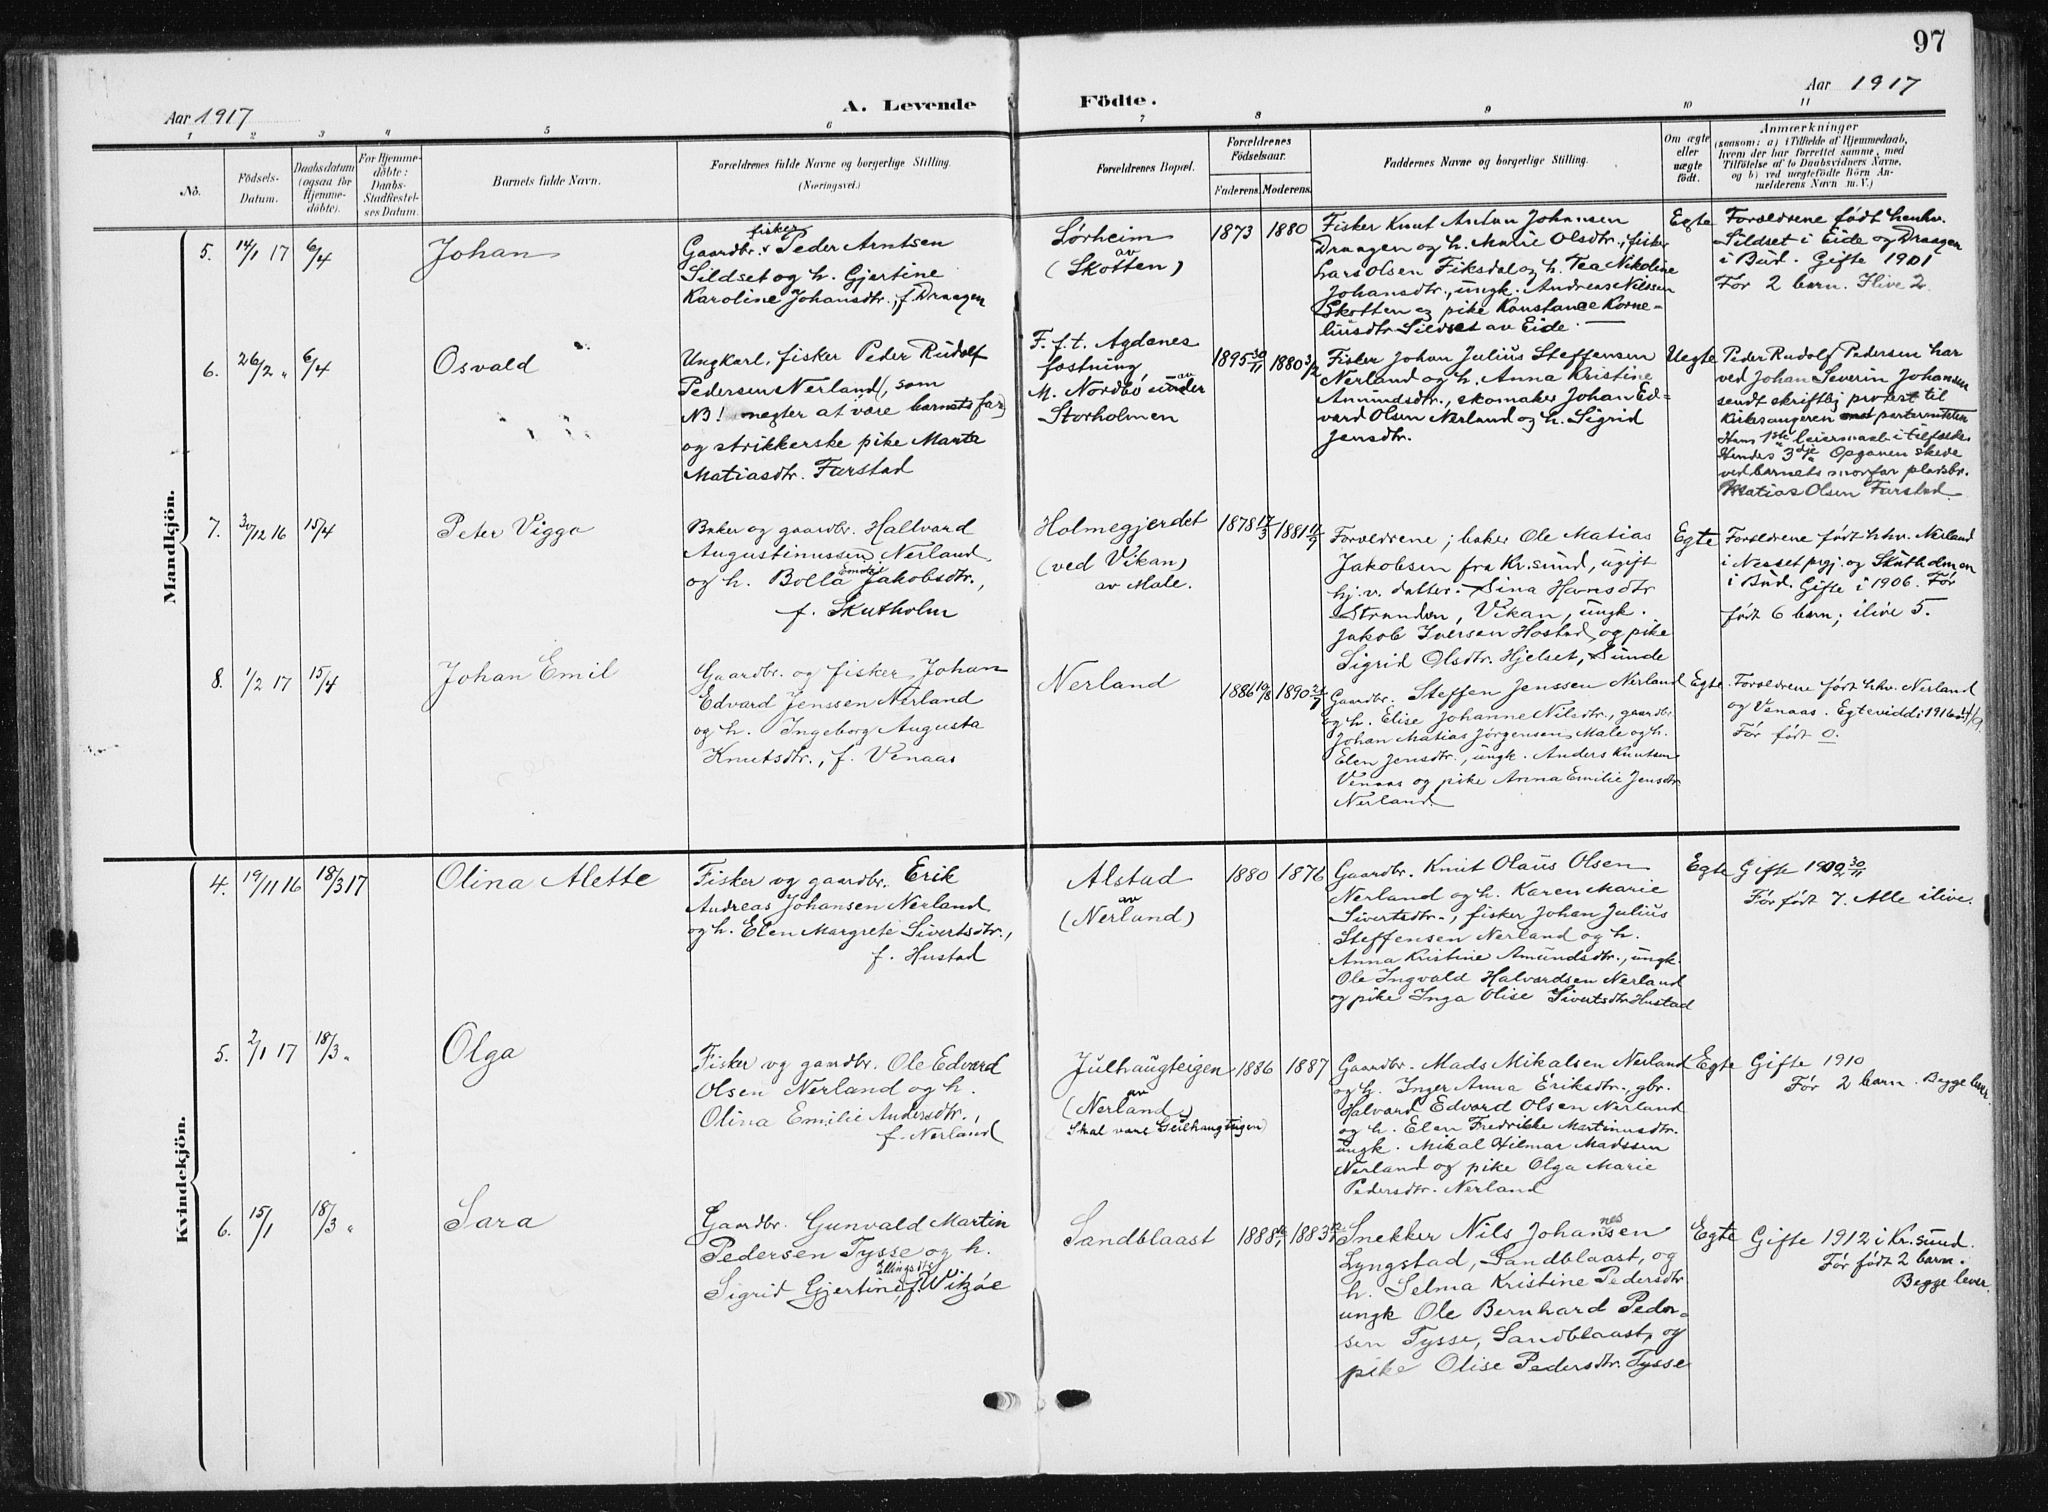 97
Aar 1917
A. Levende Födte.
Aar 1917
1 2 3 4 5 6 7 8 9 10 11
No.
Födsels-
Datum.
Daabsdatum
(ogsaa for
Hjemme-
döbte).
For Hjemme-
döbte:
Daabs-
Stadfæstel-
ses Datum.
Barnets fulde Navn.
Forældrenes fulde Navne og borgerlige Stilling.
(Næringsvei.)
Forældrenes Bopæl.
Forældrenes
Födselsaar.
Faderens. Moderens.
Faddernes Navne og borgerlige Stilling.
Om ægte
eller
uægte
födt.
Anmærkninger
(saasom: a) i Tilfælde af Hjemmedaab,
hvem der har forrettet samme, med
Tilföielse af to Daabsvidners Navne,
og b) ved uægtefödte Börn An-
melderens Navn m. V.)
Mandkjön.
5. 14/1 17 6/4
Johan
fisker
Gaardbr. Peder Arntsen
Sildset og h. Gjertine
Karoline Johansdtr., f. Draagen
Lørheim
av
(Skotten)
1873 1880
Fisker Knut Anton Johansen
Draagen og h. Marie Olsdtr., fisker
Lars Olsen Fiksdal og h. Tea Nikoline
Johansdtr., ungk. Andreas Nilssen
Skotten og pike Konstanse Korne-
liusdtr Sildset av Eide.
Egte
Forældrene født henhv.
Sildset i Eide og Draagen
i Bud. Gifte 1901
Før 2 barn. Ilive 2.
6. 26/2 " 6/4
Osvald
Ungkarl, fisker Peder Rudolf
Pedersen Nerland (, som
NB! negter at være barnets far)
og strikkerske pike Marta
Matiasdtr. Farstad
F. f. t. Agdenes
fæstning,
M. Nordbø under
av
Storholmen
1895 30/11 1880 3/2
Fisker Johan Julius Steffensen
Nerland og h. Anna Kristine
Amundsdtr., skomaker Johan Ed-
vard Olsen Nerland og h. Sigrid
Jensdtr.
Uegte
Peder Rudolf Pedersen har
ved Johan Severin Johansen
sendt skriftlig protest til
kirkesangeren mot paterniteten
Hans 1ste leiermaal i tilfælde.
Hendes 3dje. Opgaven skede
ved barnets morfar pladsbr.
Matias Olsen Farstad.
7. 30/12 16 15/4
Peter Viggo
Baker og gaardbr. Hallvard
Augustinussen Nerland
og h. Bolla Emilie Jakobsdtr.,
f. Skutholm
Holmegjerdet
(ved Vikan)
av Male.
1878 17/3 1881 11/9
Forældrene; baker Ole Matias
Jakobsen fra Kr.sund, ugift
hj.v. datter. Sina Hansdtr
Stranden, Vikan, ungk.
Jakob Iversen Hostad og pike
Sigrid Olsdtr. Hjelset, Sunde
Egte
Forældrene født hhv. Nerland
i Nesset prgj. og Skutholmen
i Bud. Gifte i 1906. Før
født 6 barn; ilive 5.
8. 1/2 17 15/4
Johan Emil
Gaardbr. og fisker Johan
Edvard Jenssen Nerland
og h. Ingeborg Augusta
Knutsdtr., f. Venaas
Nerland
1886 19/8 1890 22/7
Gaardbr. Steffen Jenssen Nerland
og h. Elise Johanne Nilsdtr., gaardbr.
Johan Matias Jørgensen Male og h.
Elen Jensdtr., ungk. Anders Knutsen
Venaas og pike Anna Emilie Jensdtr
Nerland
Egte
Forældrene født hhv. Nerland
og Venaas. Egteviddi 1916
Før født 0.
Kvindekjön.
4. 19/11 16 18/3 17
Olina Alette
Fisker og gaardbr. Erik
Andreas Johansen Nerland
og h. Elen Margrete Sivertsdtr.,
f. Hustad
Alstad
av
(Nerland)
1880 1876
Gaardbr. Knut Olaus Olsen
Nerland og h. Karen Marie
Sivertsdtr., fisker Johan Julius
Steffensen Nerland og h.
Anna Kristine Amundsdtr., ungk.
Ole Ingvald Halvardsen Nerland
og pike Inga Olise Sivertsdtr Hustad
Egte
Gifte 1902 30/11
Før født 7. Alle ilive.
5. 2/1 17 18/3 "
Olga
Fisker og gaardbr. Ole Edvard
Olsen Nerland og h.
Olina Emilie Andersdtr.,
f. Nerland
Julhaugteigen
av
(Nerland)
Skal være Geilhaugteigen)
1886 1887
Gaardbr. Mads Mikalsen Nerland
og h. Inger Anna Eriksdtr., gbr.
Halvard Edvard Olsen Nerland
og h. Elen Fredrikke Martinusdtr.
ungk. Mikal Hilmar Madssen
Nerland og pike Olga Marie
Pedersdtr. Nerland
Egte
Gifte 1910
Før 2 barn. Begge lever.
6. 15/1 18/3 "
Sara
Gaardbr. Gunvald Martin
Pedersen Tysse og h.
Ellingsdtr
Sigrid Gjertine, f. Wikjøe
Sandblaast
1888 1883
Snekker Nils Johannesen
Lyngstad, Sandblaast, og
h. Selma Kristine Pedersdtr
ungk Ole Bernhard Peder-
sen Tysse, Sandblaast, og
pike Olise Pedersdtr. Tysse
Egte
Gifte 1912 i Kr.sund.
Før født 2 barn.
Begge lever.